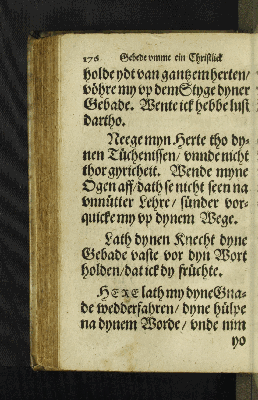 176 Gebede vmme ein Christlick
holde ydt van gantzem herten/
vöhre my vp dem Styge dyner
Gebade. Wente ick hebbe lust
dartho.
Neege myn Herte tho dy-
nen Tüchenissen/ vnnde nicht
thor gyricheit. Wende myne
Ogen aff/ dath se nicht seen na
vnnütter Lehre/ sünder vor-
quicke my vp dynem Wege.
Lath dynen Knecht dyne
Gebade vaste vor dyn Wort
holden/ dat ick dy früchte.
HERE lath my dyne Gna-
de wedderfahren/ dyne hülpe
na dynem Worde/ vnde nim
yo